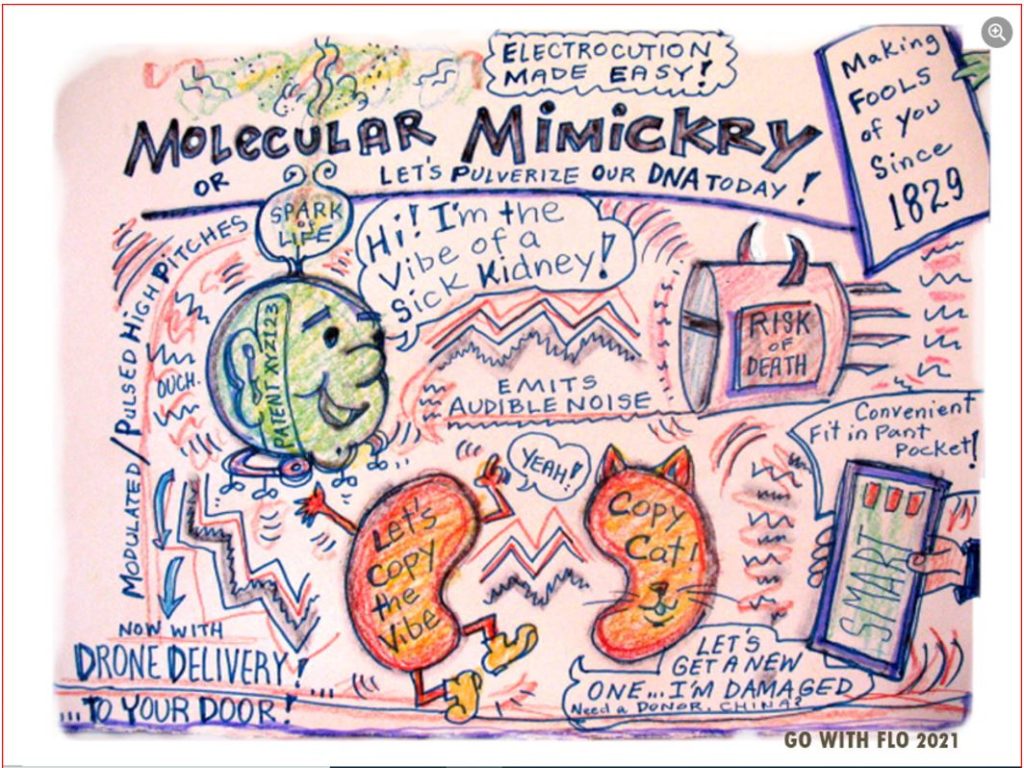 ELECTROCUTION
MADE EASY!
Making
FOOLS
of you
Since
1829
MOLECULAR MIMICKRY
OR LET'S PULVERIZE OUR DNA TODAY!
SPARK
OF
LIFE
Hi! I'm the
Vibe of a
Sick Kidney!
MODULATED/PULSED HIGH PITCHES
OUCH.
PATENT XYZ123
RISK
OF
DEATH
EMITS
AUDIBLE NOISE
Convenient
Fit in Pant
Pocket!
YEAH!
Let's
Copy
the
Vibe
Copy
Cat!
SMART
NOW WITH
DRONE DELIVERY!...
...TO YOUR DOOR!
LET'S
GET A NEW
ONE...I'M DAMAGED
Need a DONOR, CHINA?
GO WITH FLO 2021